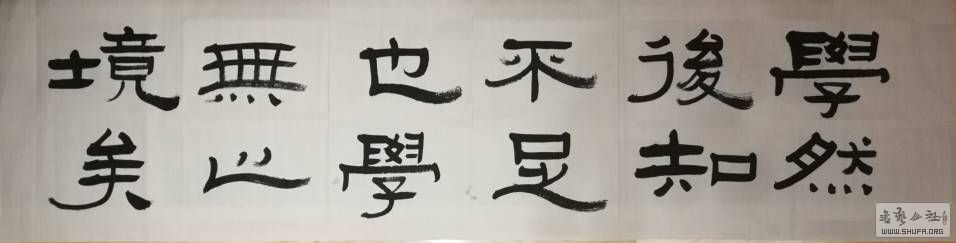 學然
後知
不足
也學
無止
境矣
書藝公社
WWW.SHUFA.ORG